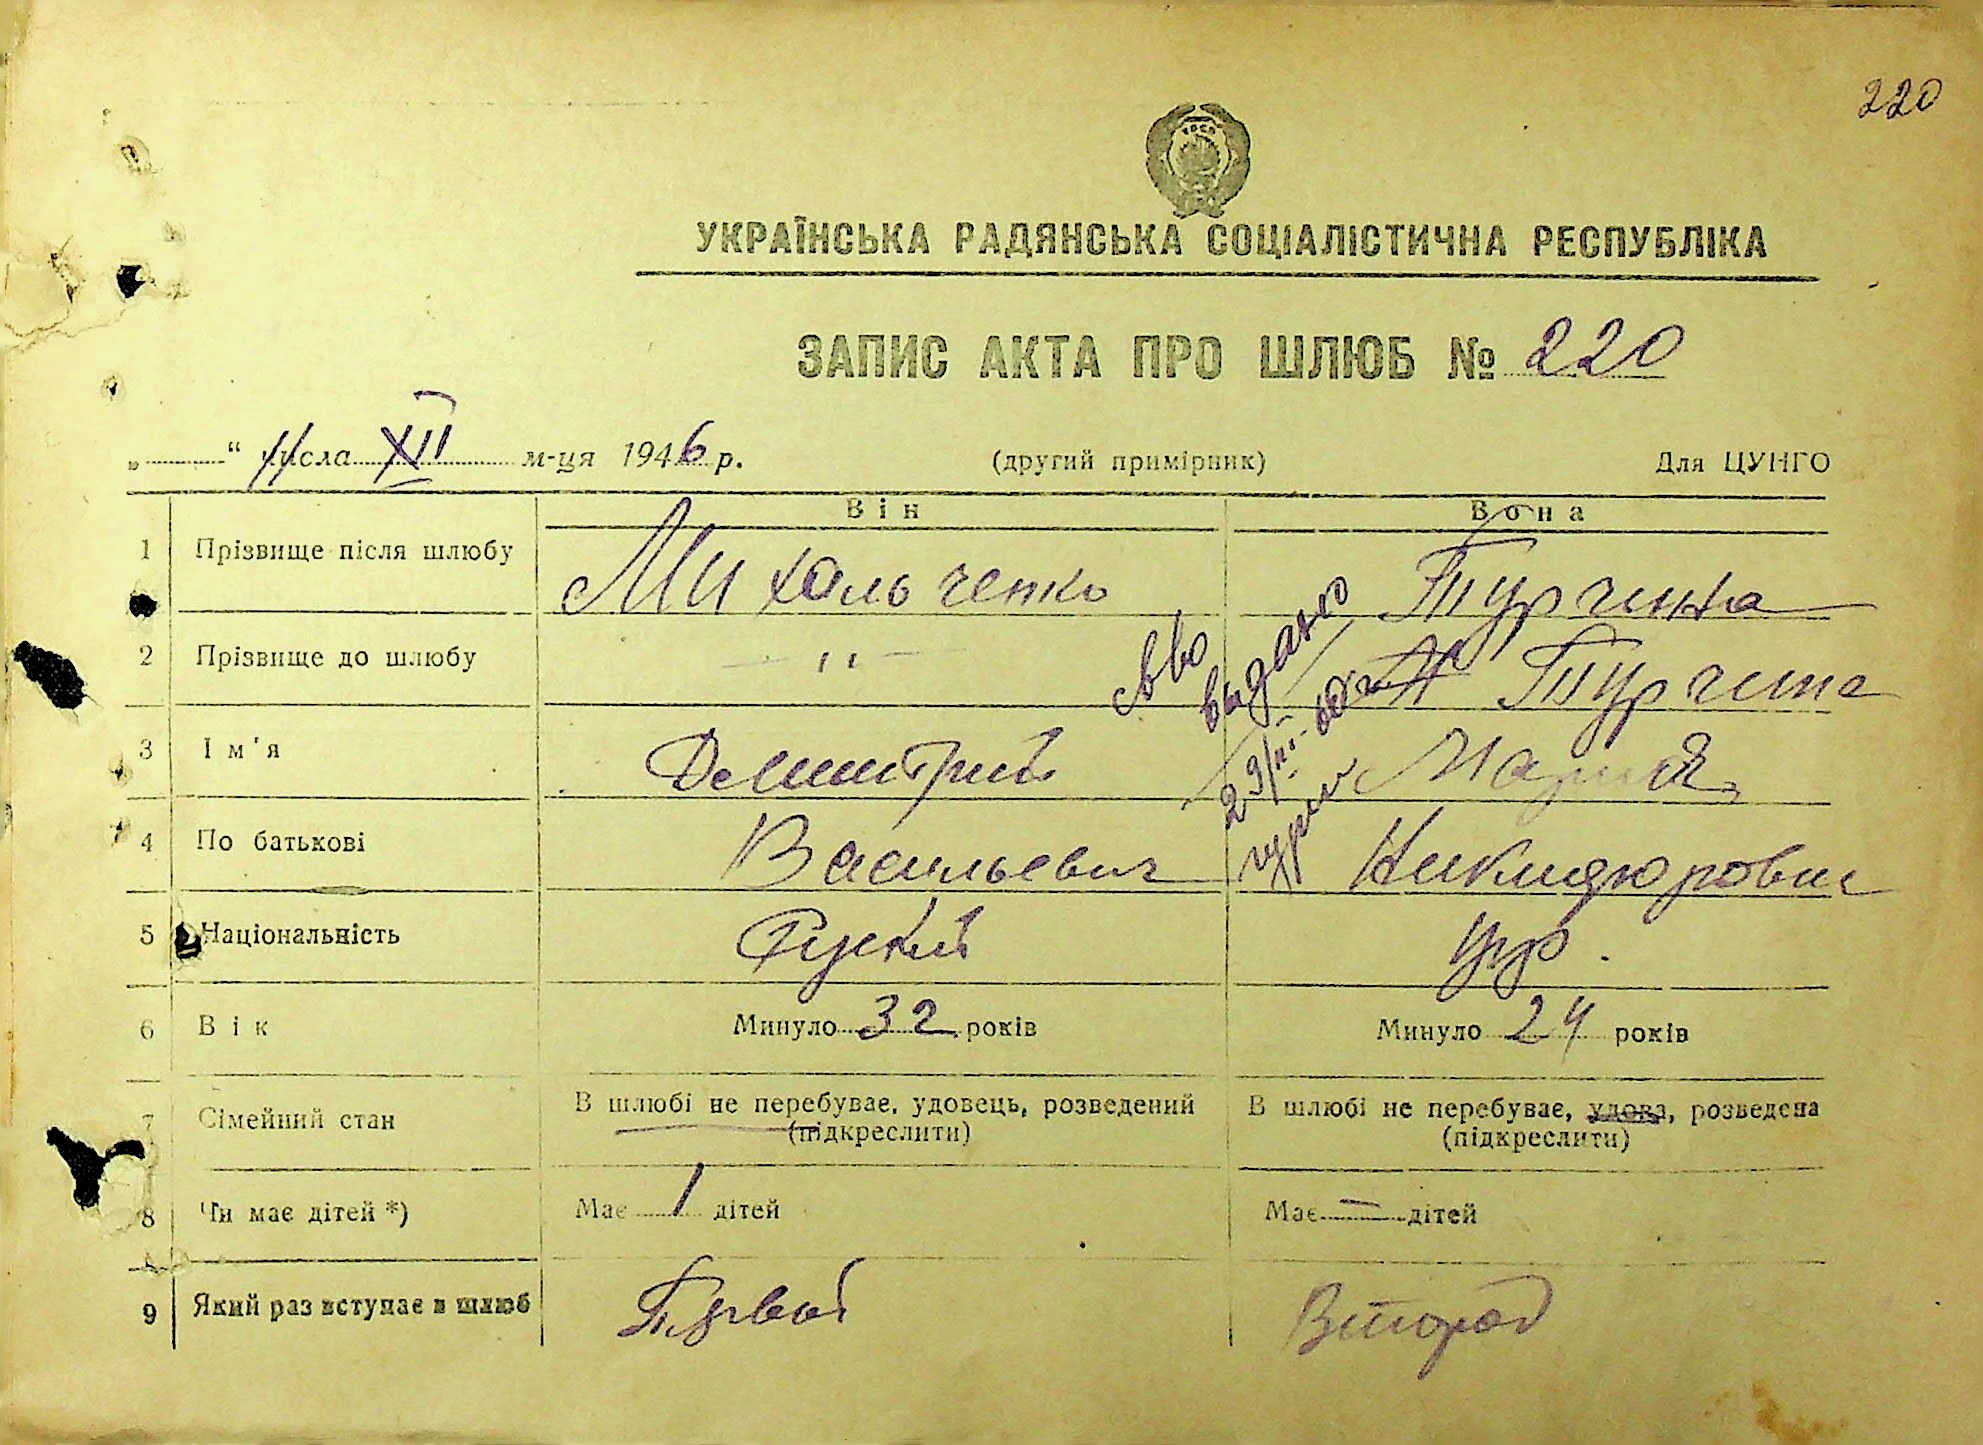 220
УКРАЇНСЬКА РАДЯНСЬКА СОЦІАЛІСТИЧНА РЕСПУБЛІКА
ЗАПИС АКТА ПРО ШЛЮБ № 220
„ “ 11 числа XII м-ця 1946 р. (другий примірник) Для ЦУНГО
Він Вона
1 Прізвище після шлюбу Михальченко Турчина
2 Прізвище до шлюбу –„– Турчина
св-во выдано
3 Ім'я Дмитрий Мария
4 По батькові Васильевич
5 Національність Руский укр.
6 Вік Минуло 32 років Минуло 24 років
7 Сімейний стан В шлюбі не перебуває, удовець, розведений В шлюбі не перебуває, удова, розведена
(підкреслити) (підкреслити)
8 Чи має дітей *) Має 1 дітей Має – дітей
9 Який раз вступає в шлюб Первый Второй